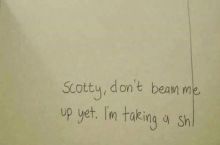 Scotty, don't beam me
up yet. I'm taking a sh